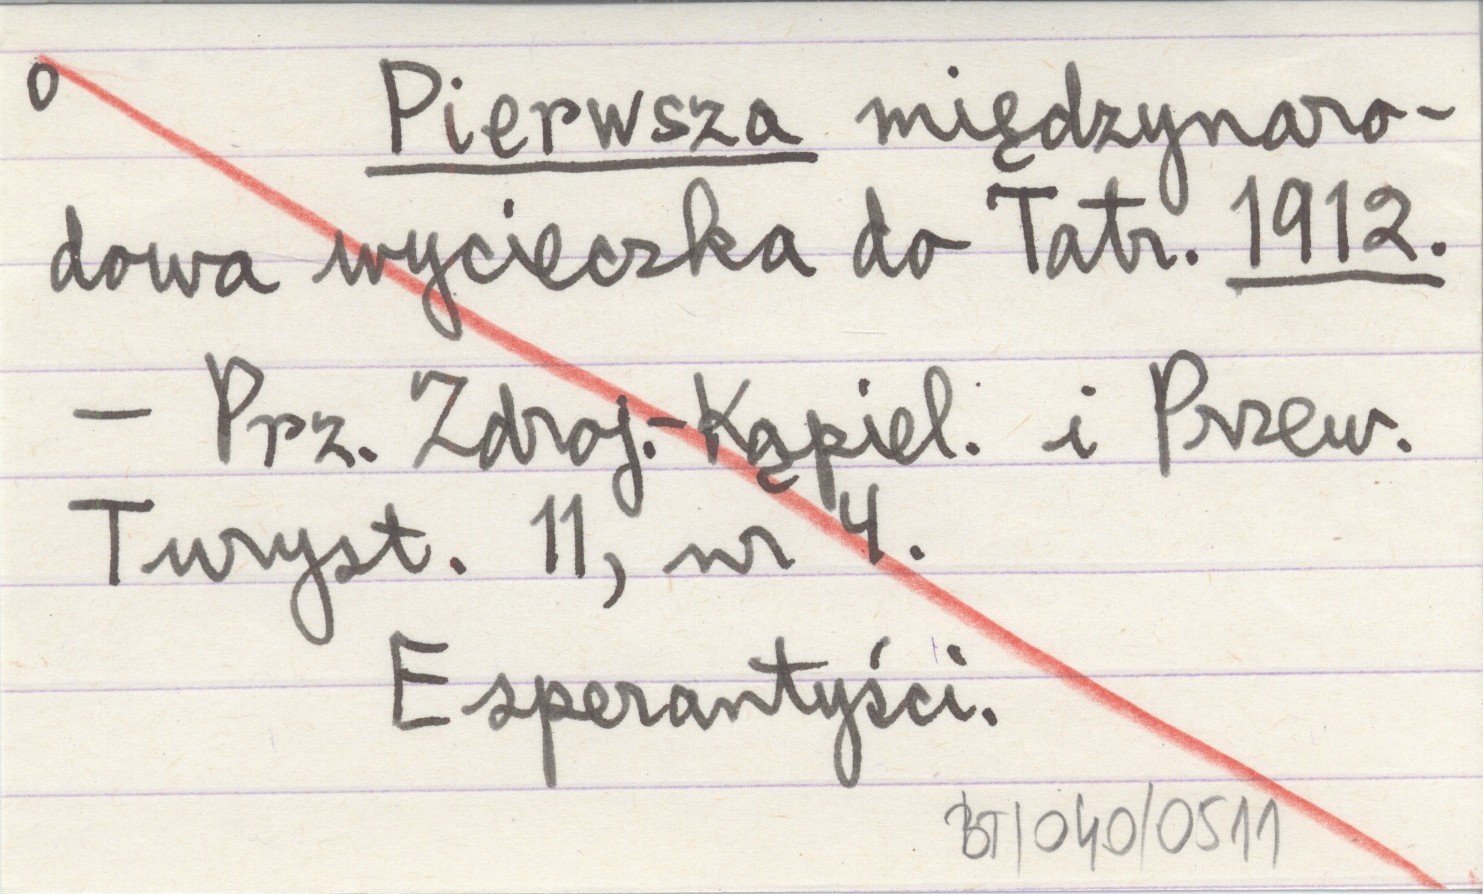 o Pierwsza międzynaro-
dowa wycieczka do Tatr. 1912.
- Prz. Zdroj.-Kąpiel. i Przew.
Turyst. 11, nr 4.
Esperantyści.
BT/040/0511